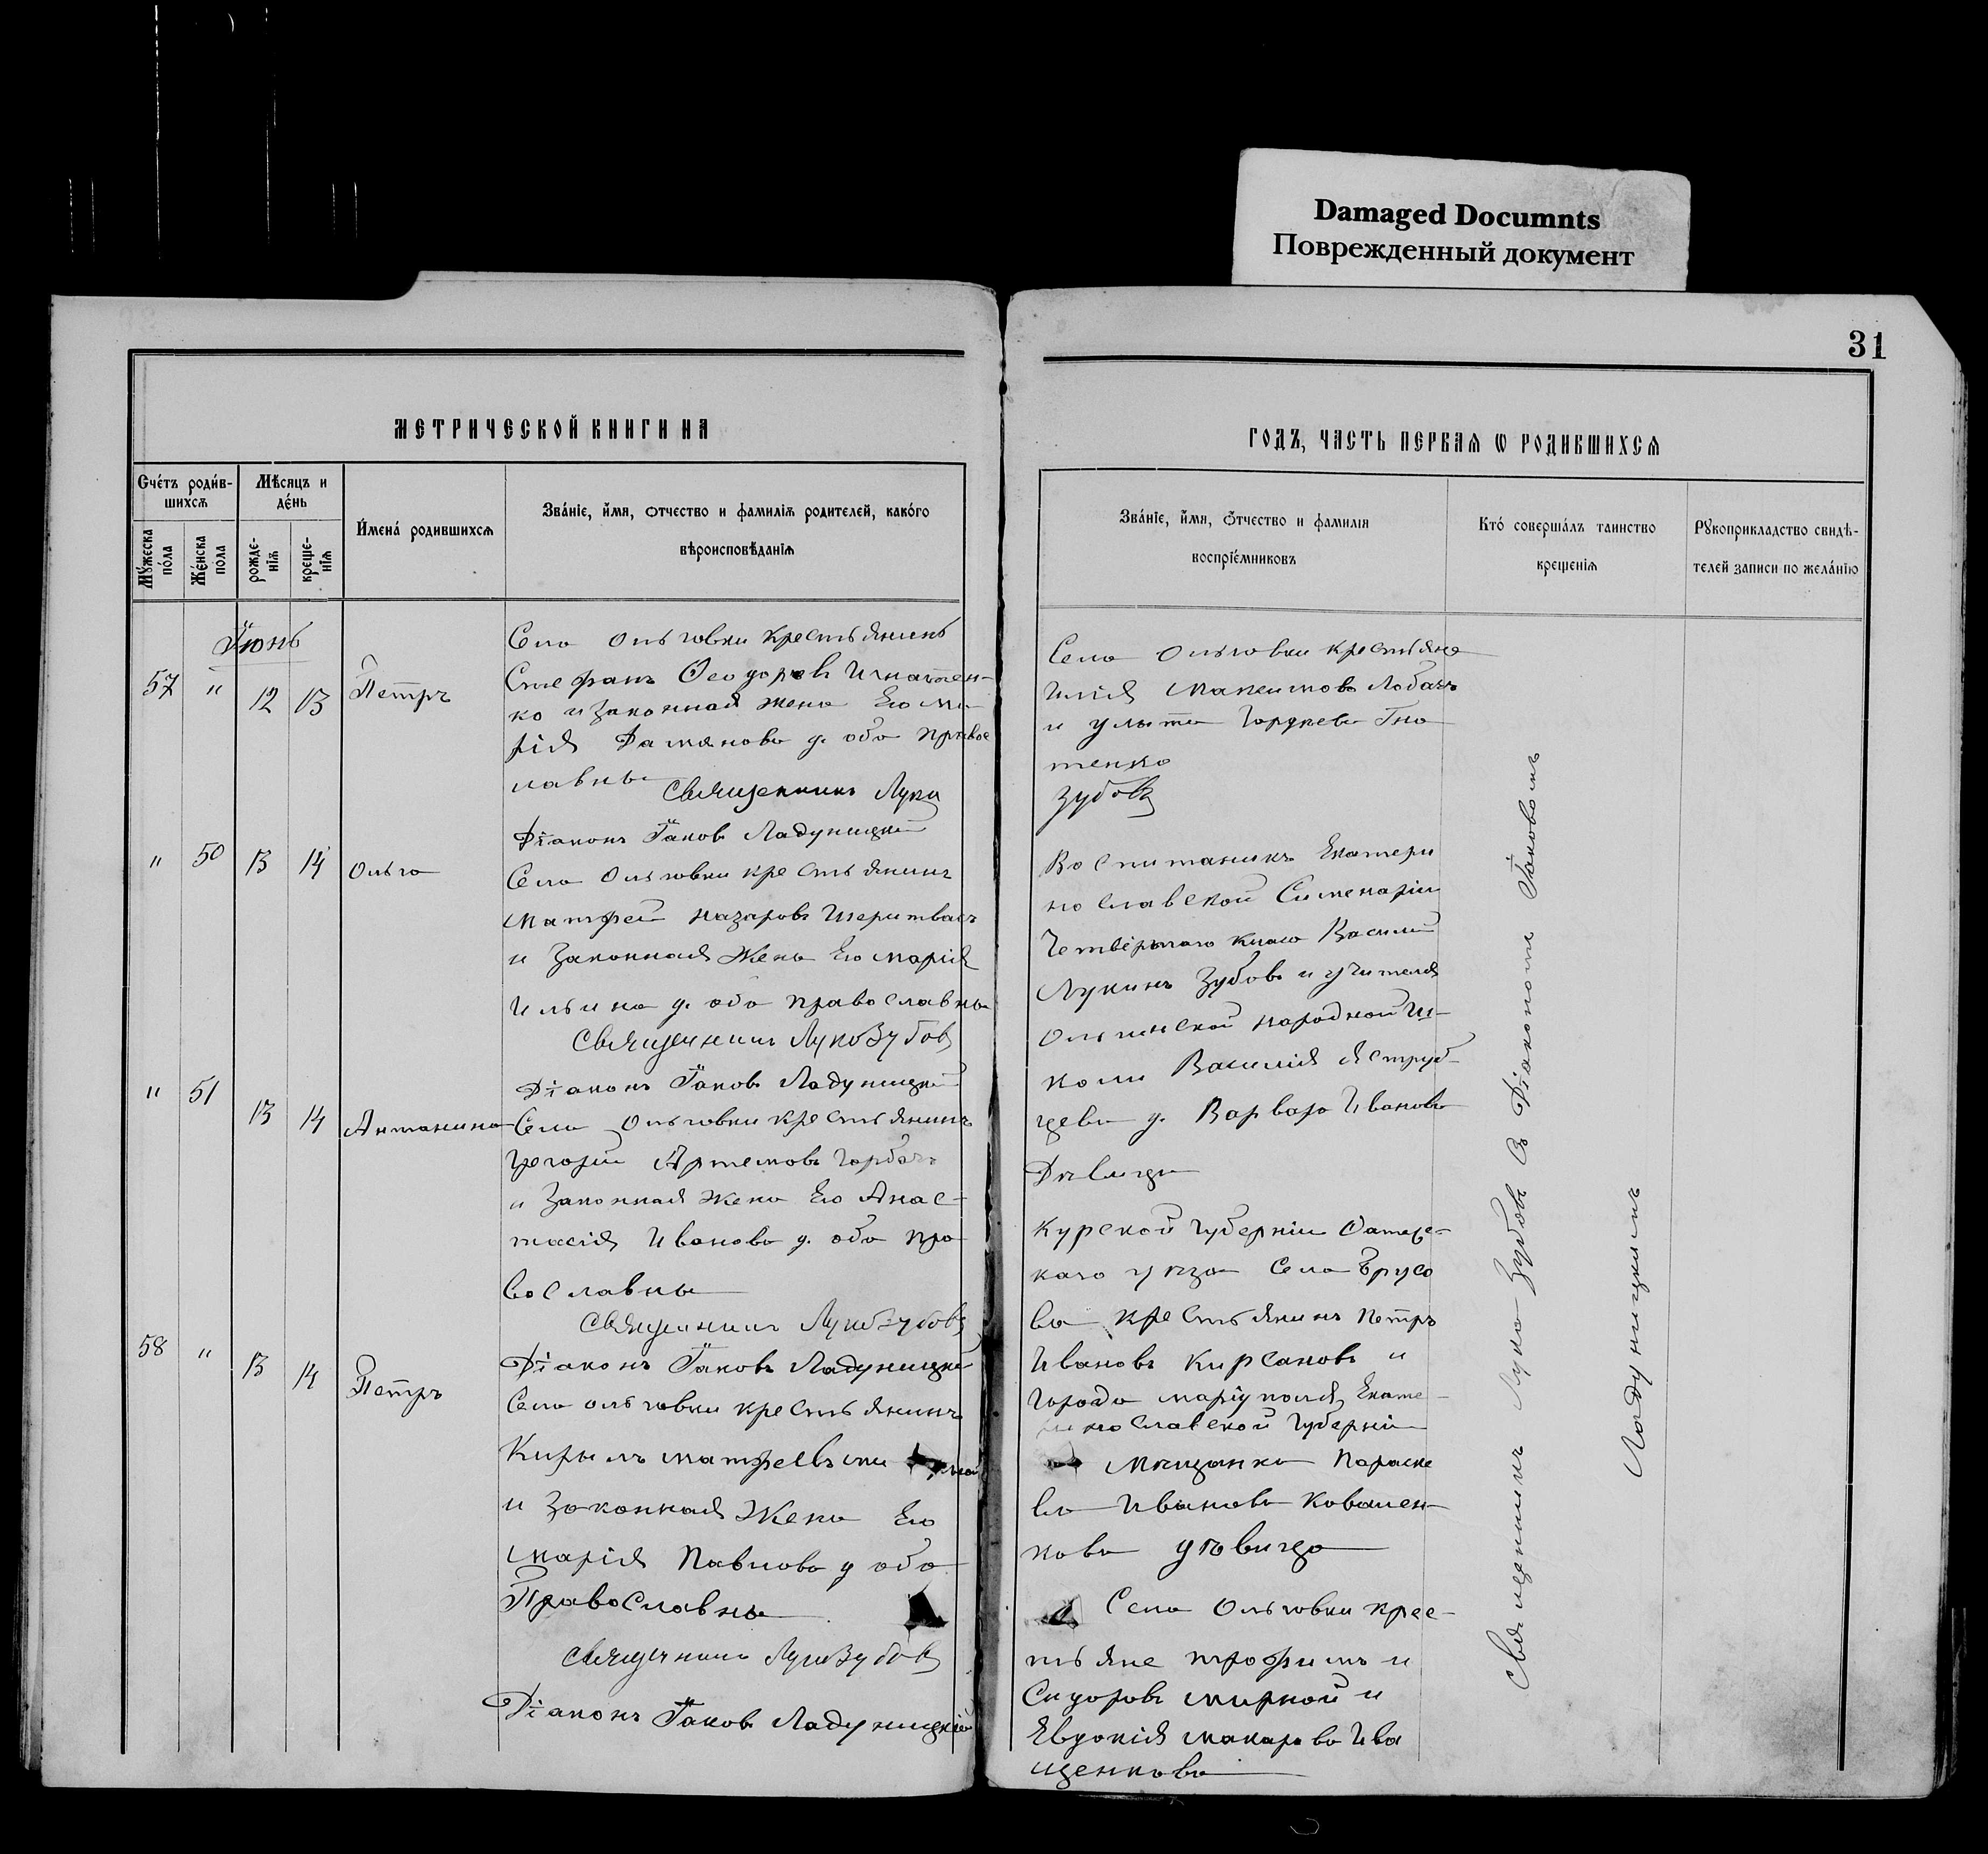 Damaged Documnts
Поврежденный документ
31
МЕТРИЧЕСКОЙ КНИГИ НА
ГОДЪ, ЧАСТЬ ПЕРВАѦ Ѡ РОДИВШИХСѦ
Счéтъ роди́в-
шихсѧ
Мѣсяцъ и
дéнь
Мꙋ́жеска
по́ла
Жéнска
пола
рожде-
нїѧ
креще-
нїѧ
И́мена́ родившихсѧ
Зва́нїе, и́мя, ѻтчество и фамилїѧ родителей, како́го
вѣроисповѣ́данїѧ
Зва́нїе, и́мя, ѻ́тчество и фамилїѧ
воспрїе́мниковъ
Кто́ соверша́лъ таинство
крещенїѧ
Рꙋкоприкладство свидѣ-
телей записи по жела́нїю
Іюнь
57 " 12 13 Петръ
Села Ольговки крестьянинъ
Стефанъ Ѳеодоровъ Игнатен-
ко и законная жена Его Ма
рія Дамянова д. оба правос
лавны
Священникъ Лука
Діаконъ Іаковъ Ладуницкій
Села Ольговки крестьяне
Илія Максимовъ Лобачъ
и Улита Гордеева Гна
тенко
Зубовъ
" 50 13 14 Ольга
Села Ольговки крестьянинъ
Матфей Назаровъ
и Законная Жена Его Марія
Ильина д. оба православны
Священникъ Лука Зубовъ
Діаконъ Іаковъ Ладуницкій
Воспитаникъ Екатери
нославской Семенаріи
Четвертаго класа Василій
Лукинъ Зубовъ и учителя
Ольгинской народной Ш-
колы Василія Яструб-
цева д. Варвара Иванова
Дѣвица
" 51 13 14 Антанина
Села Ольговки крестьянинъ
Григорій Артемовъ Горбачъ
и Законная жена Его Анас-
тасія Иванова д. оба пра
вославны
Священникъ Лука Зубовъ
Діаконъ Іаковъ Ладуницкій
Курской Губерніи
каго уѣзда Села Брусо
ва крестьянинъ Петръ
Ивановъ Кирсановъ и
Города Маріуполя Екате-
нославской Губерніи
Мѣщанка Параске
ва Иванова Ковален-
кова дѣвица
58 " 13 14 Петръ
Села Ольговки крестьянинъ
Кирылъ Матфеевъ
и Законная Жена Его
Марія Павлова д оба
Православны
Священникъ Лука Зубовъ
Діаконъ Іаковъ Ладуницкій
Села Ольговки крес-
тьяне Трофимъ и
Сидоровъ Мирной и
Евдокія Макарова Ива
щенкова
Священникъ Лука Зубовъ Съ Діакономъ Іаковомъ
Ладуницкимъ